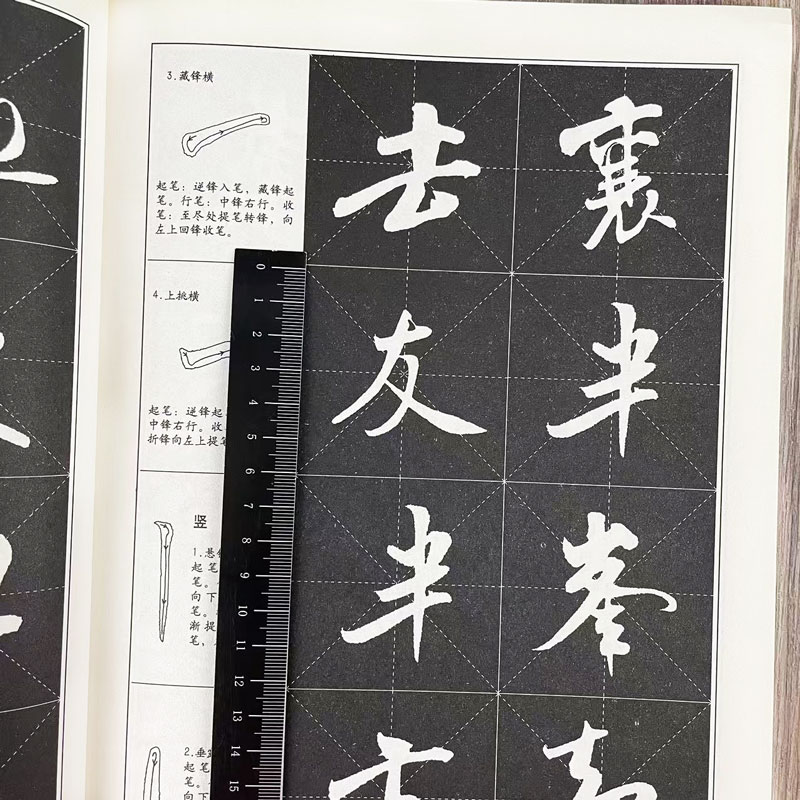 3.藏锋横
起笔：逆锋入笔，藏锋起
笔。行笔：中锋右行。收
笔：至尽处提笔转锋，向
左上回锋收笔。
4.上挑横
起笔：逆锋起
中锋右行。收
折锋向左上提
竖
1.悬
起笔
笔。
向下
笔。
渐提
笔，
2.垂
起笔
笔。
向下
去 裹
友 半
半 峯
0
1
2
3
4
5
6
7
8
9
10
11
12
13
14
15